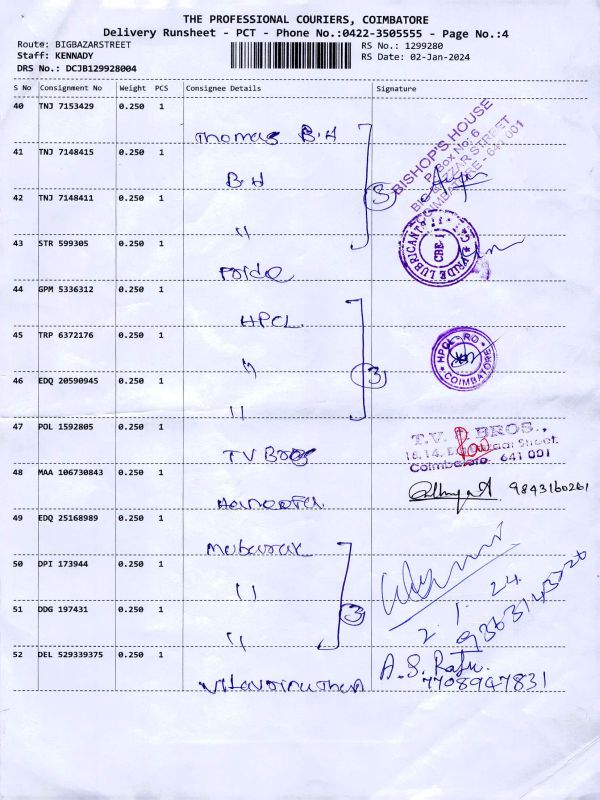 THE PROFESSIONAL COURIERS, COIMBATORE
Delivery Runsheet - PCT - Phone No.:0422-3505555 - Page No.:4
Route: BIGBAZARSTREET RS No.: 1299280
Staff: KENNADY RS Date: 02-Jan-2024
DRS No.: DCJB129928004
S No Consignment No Weight PCS Consignee Details Signature
40 TNJ 7153429 0.250 1
Thomas B.H
BISHOP'S HOUSE
P. Box No: 6
BIG BAZAR STREET
COIMBATORE - 641 001
41 TNJ 7148415 0.250 1
B H
42 TNJ 7148411 0.250 1
" 3
43 STR 599305 0.250 1
Pride
PRIDE LUBRICANTS
CBE-1
44 GPM 5336312 0.250 1
HPCL
45 TRP 6372176 0.250 1
"
HPCL - RO
COIMBATORE
46 EDQ 20590945 0.250 1
" 3
47 POL 1592805 0.250 1
TV Bros
T.V. BROS.,
Street.
Coimbatore. 641 001
48 MAA 106730843 0.250 1
9843160261
49 EDQ 25168989 0.250 1
Mubarak
50 DPI 173944 0.250 1
"
51 DDG 197431 0.250 1
" 3
2.1.24
52 DEL 529339375 0.250 1
A.S. Raju.
7708947831